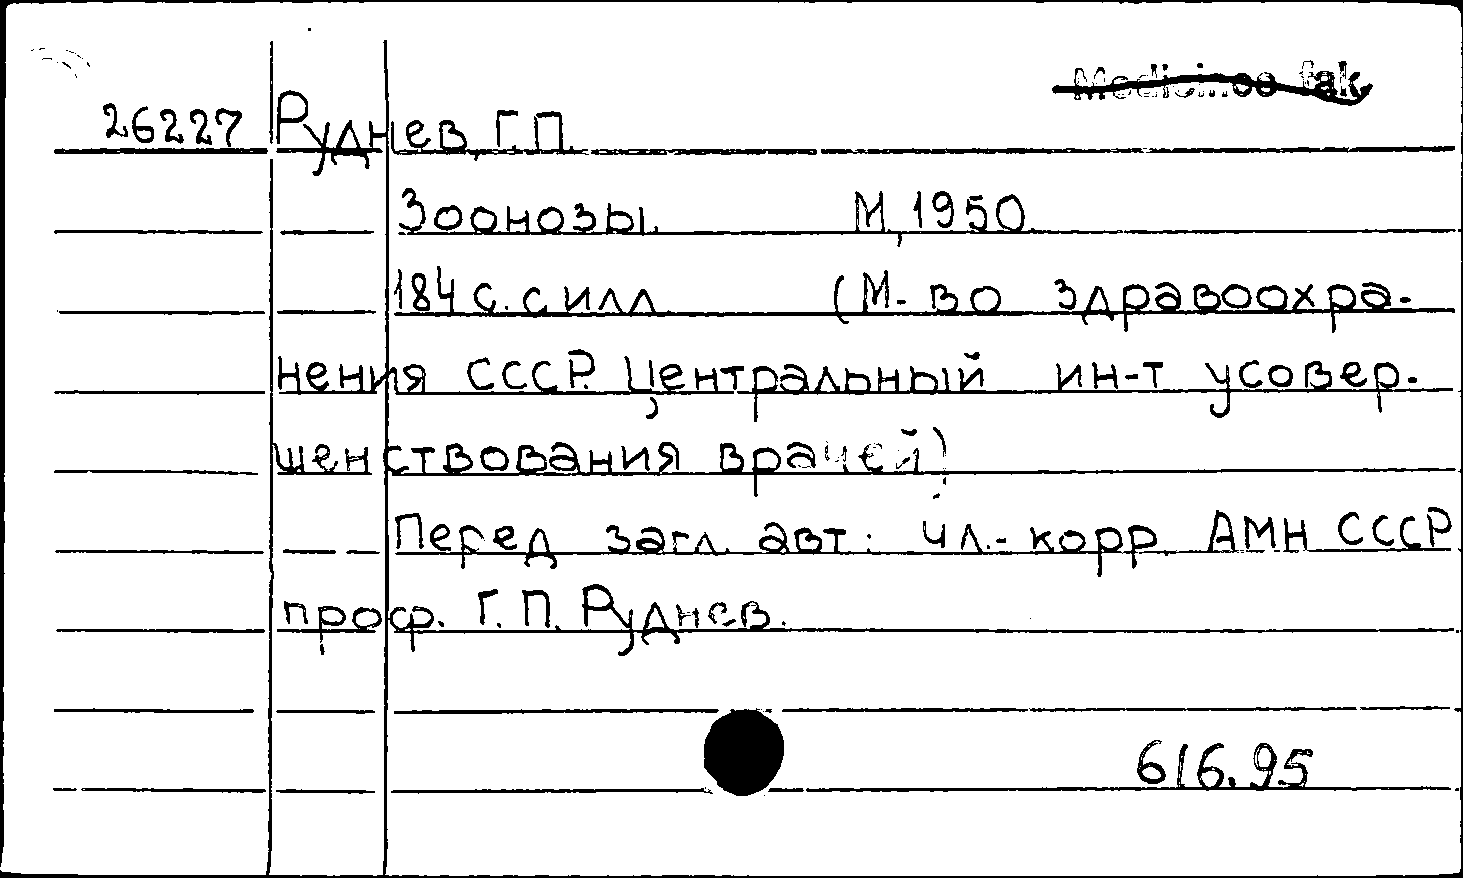 Medicinos fak.
26227 Руднев, Г.П.
Зоонозы. М., 1950.
184 с. с илл. (М-во здравоохра-
нения СССР. Центральный ин-т усовер-
шенствования врачей).
Перед загл. авт.: чл.-корр. АМН СССР
проф. Г.П. Руднев.
616.95